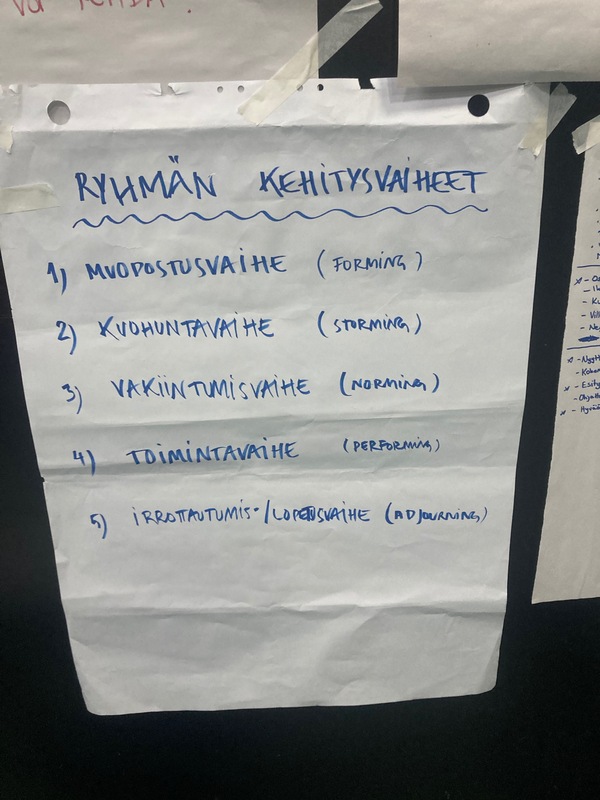 RYHMÄN KEHITYSVAIHEET
1) MUODOSTUSVAIHE (FORMING)
2) KUOHUNTAVAIHE (STORMING)
3) VAKIINTUMISVAIHE (NORMING)
4) TOIMINTAVAIHE (PERFORMING)
5) IRROTTAUTUMIS-/LOPETUSVAIHE (ADJOURNING)